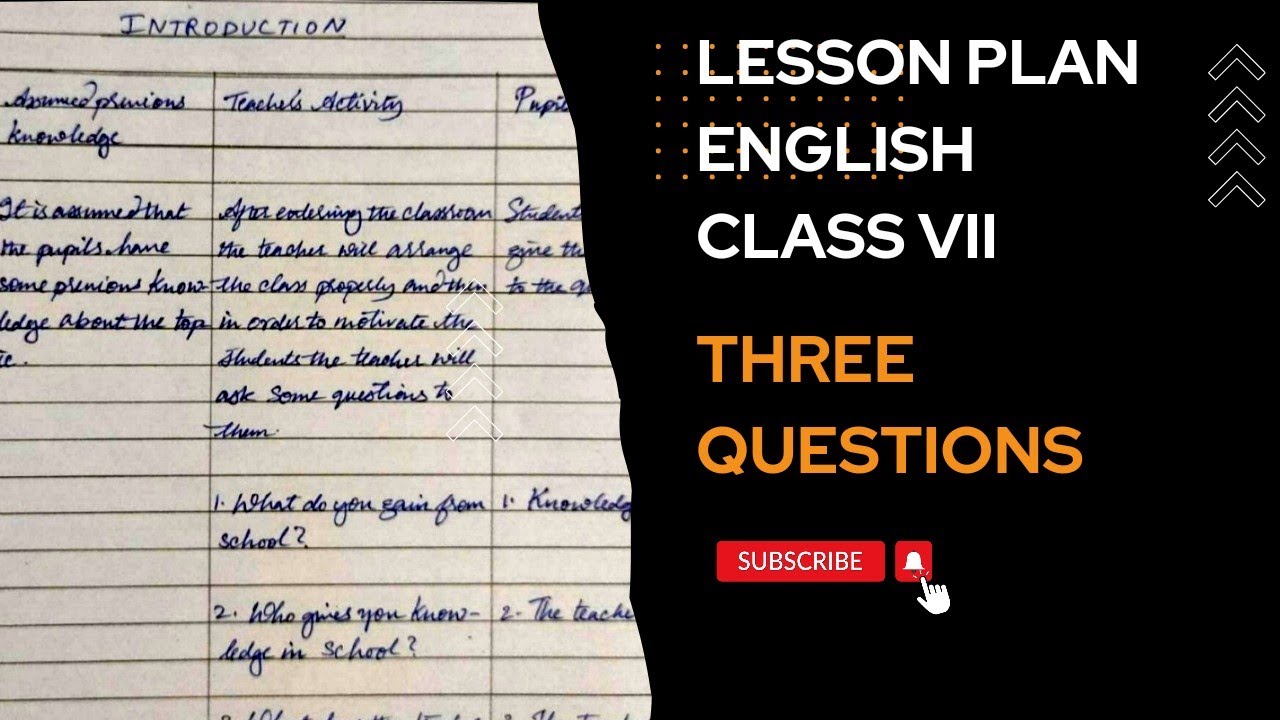 INTRODUCTION
Assumed previous
knowledge
Teacher's Activity
Pupil
It is assumed that
the pupils have
some previous know-
ledge about the top
ic.
After entering the classroom
the teacher will arrange
the class properly and then
in order to motivate the
students the teacher will
ask some questions to
them.
Student
give th
to the
1. What do you gain from
school?
1. Knowledg
2. Who gives you know-
ledge in school?
2. The teache
LESSON PLAN
ENGLISH
CLASS VII
THREE
QUESTIONS
SUBSCRIBE